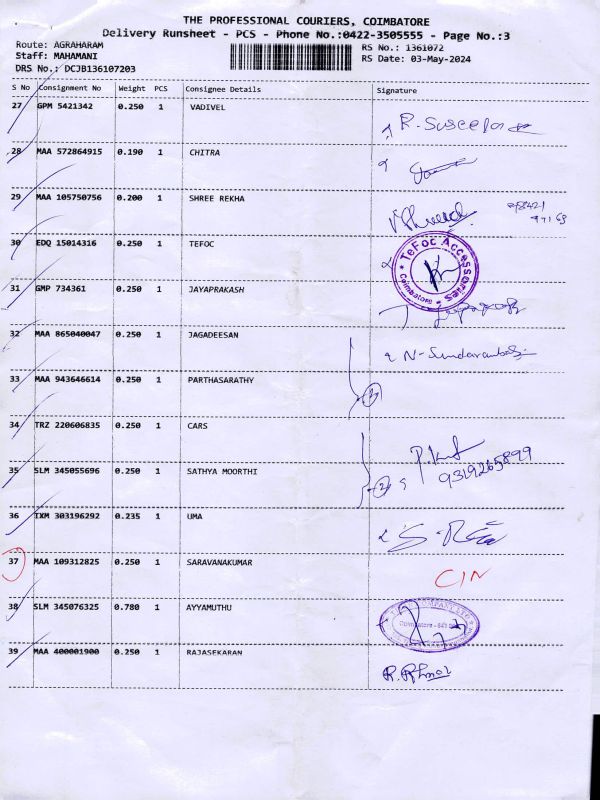 THE PROFESSIONAL COURIERS, COIMBATORE
Delivery Runsheet - PCS - Phone No.:0422-3505555 - Page No.:3
Route: AGRAHARAM RS No.: 1361072
Staff: MAHAMANI RS Date: 03-May-2024
DRS No.: DCJB136107203
S No Consignment No Weight PCS Consignee Details Signature
27 GPM 5421342 0.250 1 VADIVEL
28 MAA 572864915 0.190 1 CHITRA
29 MAA 105750756 0.200 1 SHREE REKHA
30 EDQ 15014316 0.250 1 TEFOC
TeFoc Accessories
Coimbatore
31 GMP 734361 0.250 1 JAYAPRAKASH
32 MAA 865040047 0.250 1 JAGADEESAN
33 MAA 943646614 0.250 1 PARTHASARATHY
34 TRZ 220606835 0.250 1 CARS
35 SLM 345055696 0.250 1 SATHYA MOORTHI
9319265899
36 IXM 303196292 0.235 1 UMA
37 MAA 109312825 0.250 1 SARAVANAKUMAR
CIN
38 SLM 345076325 0.780 1 AYYAMUTHU
39 MAA 400001900 0.250 1 RAJASEKARAN